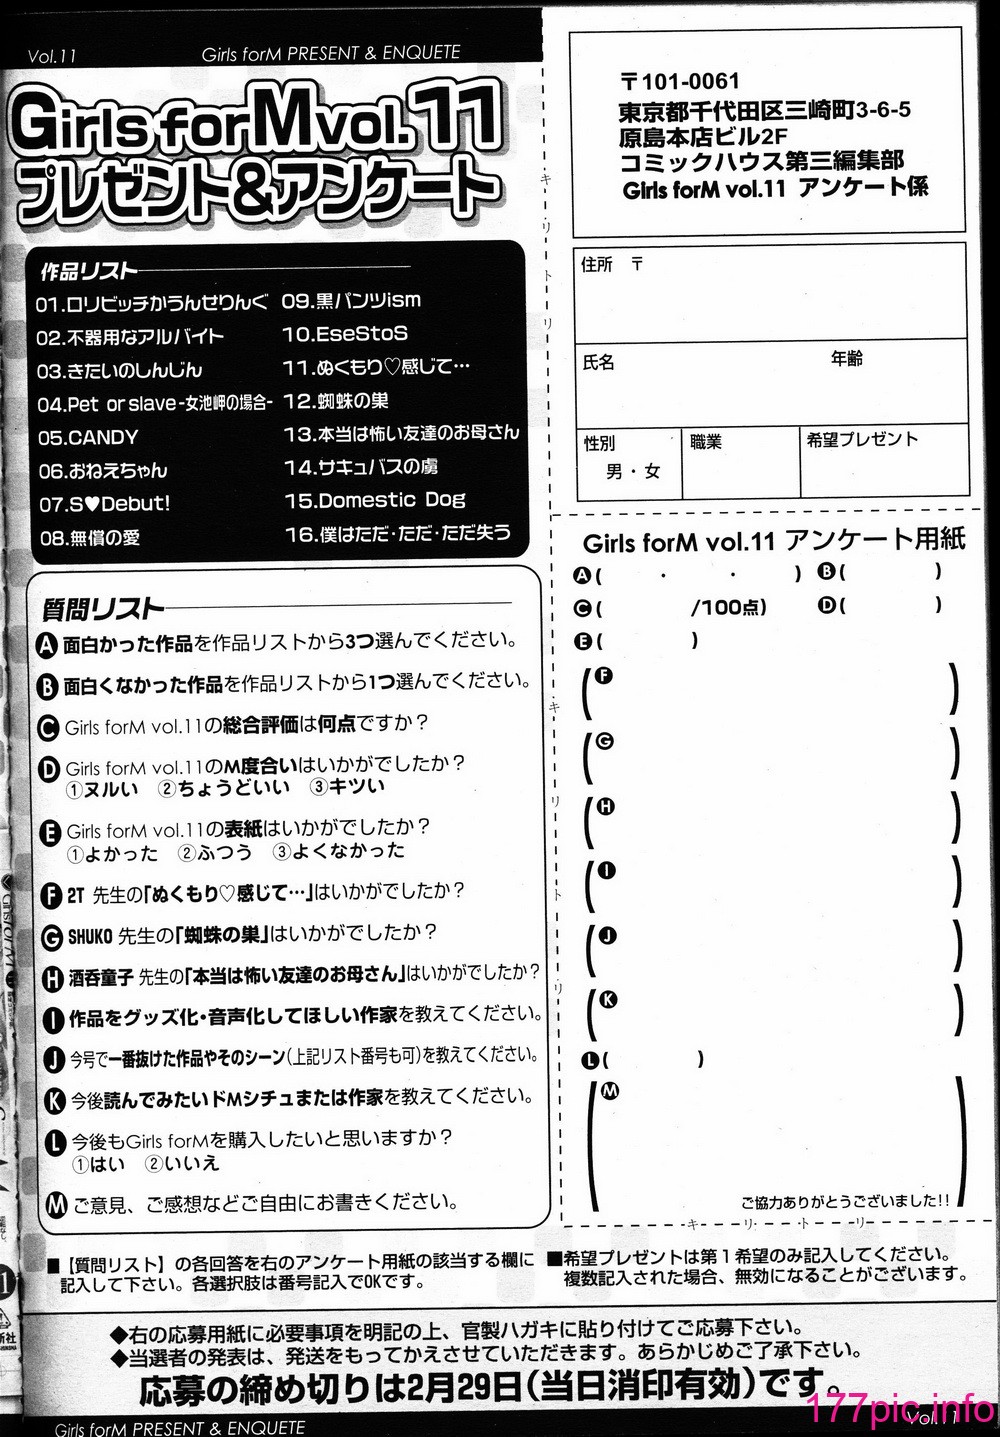 Vol.11
Girls forM PRESENT & ENQUETE
Girls forM vol.11
プレゼント&アンケート
作品リスト
01.ロリビッチかうんせりんぐ
02.不器用なアルバイト
03.きたいのしんじん
04.Pet or slave-女池岬の場合-
05.CANDY
06.おねえちゃん
07.S♥Debut!
08.無償の愛
09.黒パンツism
10.EseStoS
11.ぬくもり♡感じて…
12.蜘蛛の巣
13.本当は怖い友達のお母さん
14.サキュバスの虜
15.Domestic Dog
16.僕はただ・ただ・ただ失う
質問リスト
A 面白かった作品を作品リストから3つ選んでください。
B 面白くなかった作品を作品リストから1つ選んでください。
C Girls forM vol.11の総合評価は何点ですか？
D Girls forM vol.11のM度合いはいかがでしたか？
①ヌルい ②ちょうどいい ③キツい
E Girls forM vol.11の表紙はいかがでしたか？
①よかった ②ふつう ③よくなかった
F 2T 先生の「ぬくもり♡感じて…」はいかがでしたか？
G SHUKO 先生の「蜘蛛の巣」はいかがでしたか？
H 酒呑童子 先生の「本当は怖い友達のお母さん」はいかがでしたか？
I 作品をグッズ化・音声化してほしい作家を教えてください。
J 今号で一番抜けた作品やそのシーン（上記リスト番号も可）を教えてください。
K 今後読んでみたいドMシチュまたは作家を教えてください。
L 今後もGirls forMを購入したいと思いますか？
①はい ②いいえ
M ご意見、ご感想などご自由にお書きください。
キリトリ
〒101-0061
東京都千代田区三崎町3-6-5
原島本店ビル2F
コミックハウス第三編集部
Girls forM vol.11 アンケート係
住所 〒
氏名 年齢
性別 職業 希望プレゼント
男・女
Girls forM vol.11 アンケート用紙
A ( ・ ・ ) B ( )
C ( /100点) D ( )
E ( )
F
G
H
I
J
K
L ( )
M
ご協力ありがとうございました!!
キリトリ
キリトリ
■【質問リスト】の各回答を右のアンケート用紙の該当する欄に
記入して下さい。各選択肢は番号記入でOKです。
■希望プレゼントは第１希望のみ記入してください。
複数記入された場合、無効になることがございます。
◆右の応募用紙に必要事項を明記の上、官製ハガキに貼り付けてご応募下さい。
◆当選者の発表は、発送をもってかえさせていただきます。あらかじめご了承下さい。
応募の締め切りは2月29日（当日消印有効）です。
Girls forM PRESENT & ENQUETE
Vol.11
177pic.info